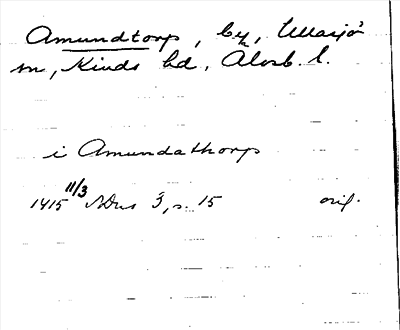 Amundtorp, by, Marjö
sn, Kinds hd, Älvsb. l.
i Amundathorp
1415 11/3 NDns 3, s. 15 orig.